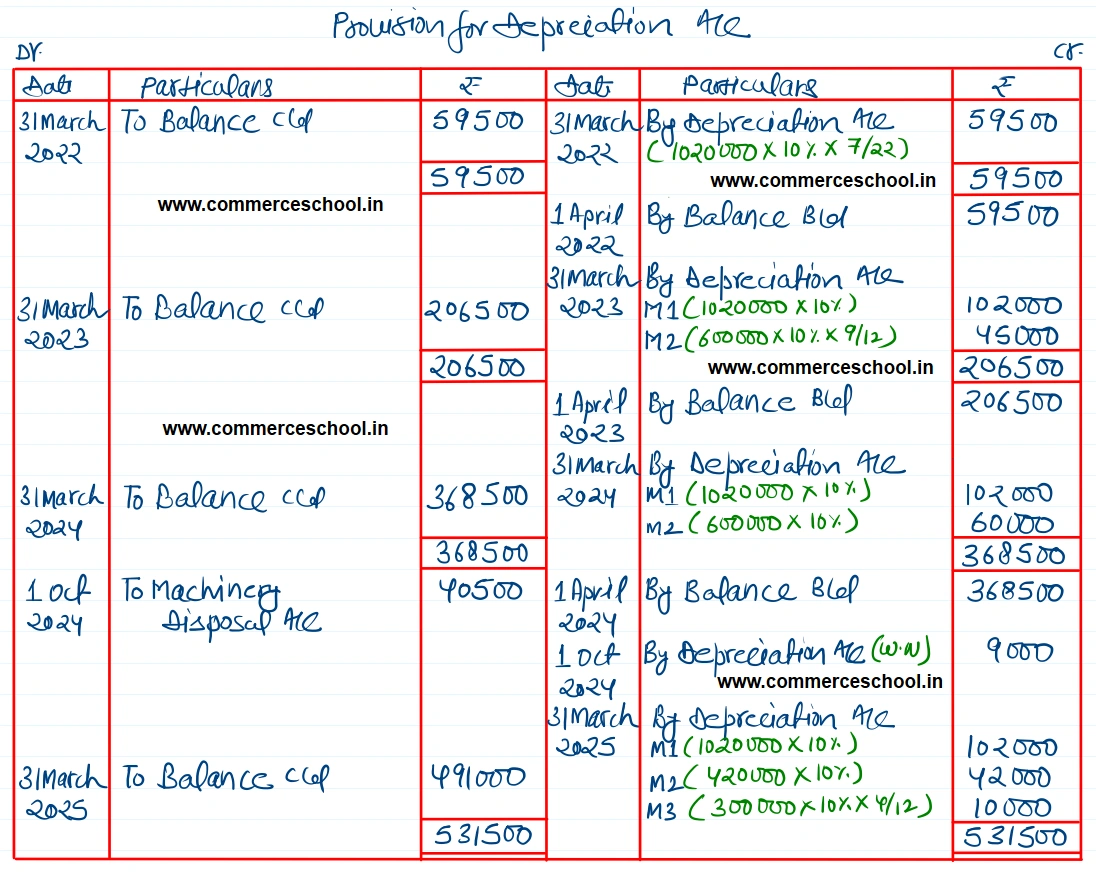 Provision for Depreciation A/c
Dr. Cr.
Date Particulars ₹ Date Particulars ₹
31 March To Balance c/d 59500 31 March By Depreciation A/c 59500
2022 2022 (1020000 X 10% X 7/22)
59500 www.commerceschool.in 59500
www.commerceschool.in 1 April By Balance B/d 59500
2022
31 March By Depreciation A/c
31 March To Balance c/d 206500 2023 M1 (1020000 X 10%) 102000
2023 M2 (600000 X 10% X 9/12) 45000
206500 www.commerceschool.in 206500
1 April By Balance B/d 206500
www.commerceschool.in 2023
31 March By Depreciation A/c
31 March To Balance c/d 368500 2024 M1 (1020000 X 10%) 102000
2024 M2 (600000 X 10%) 60000
368500 368500
1 Oct To Machinery 40500 1 April By Balance B/d 368500
2024 Disposal A/c 2024
1 Oct By Depreciation A/c (W.N) 9000
2024 www.commerceschool.in
31 March By Depreciation A/c
2025 M1 (1020000 X 10%) 102000
31 March To Balance c/d 491000 M2 (420000 X 10%) 42000
2025 M3 (300000 X 10% X 4/12) 10000
531500 531500